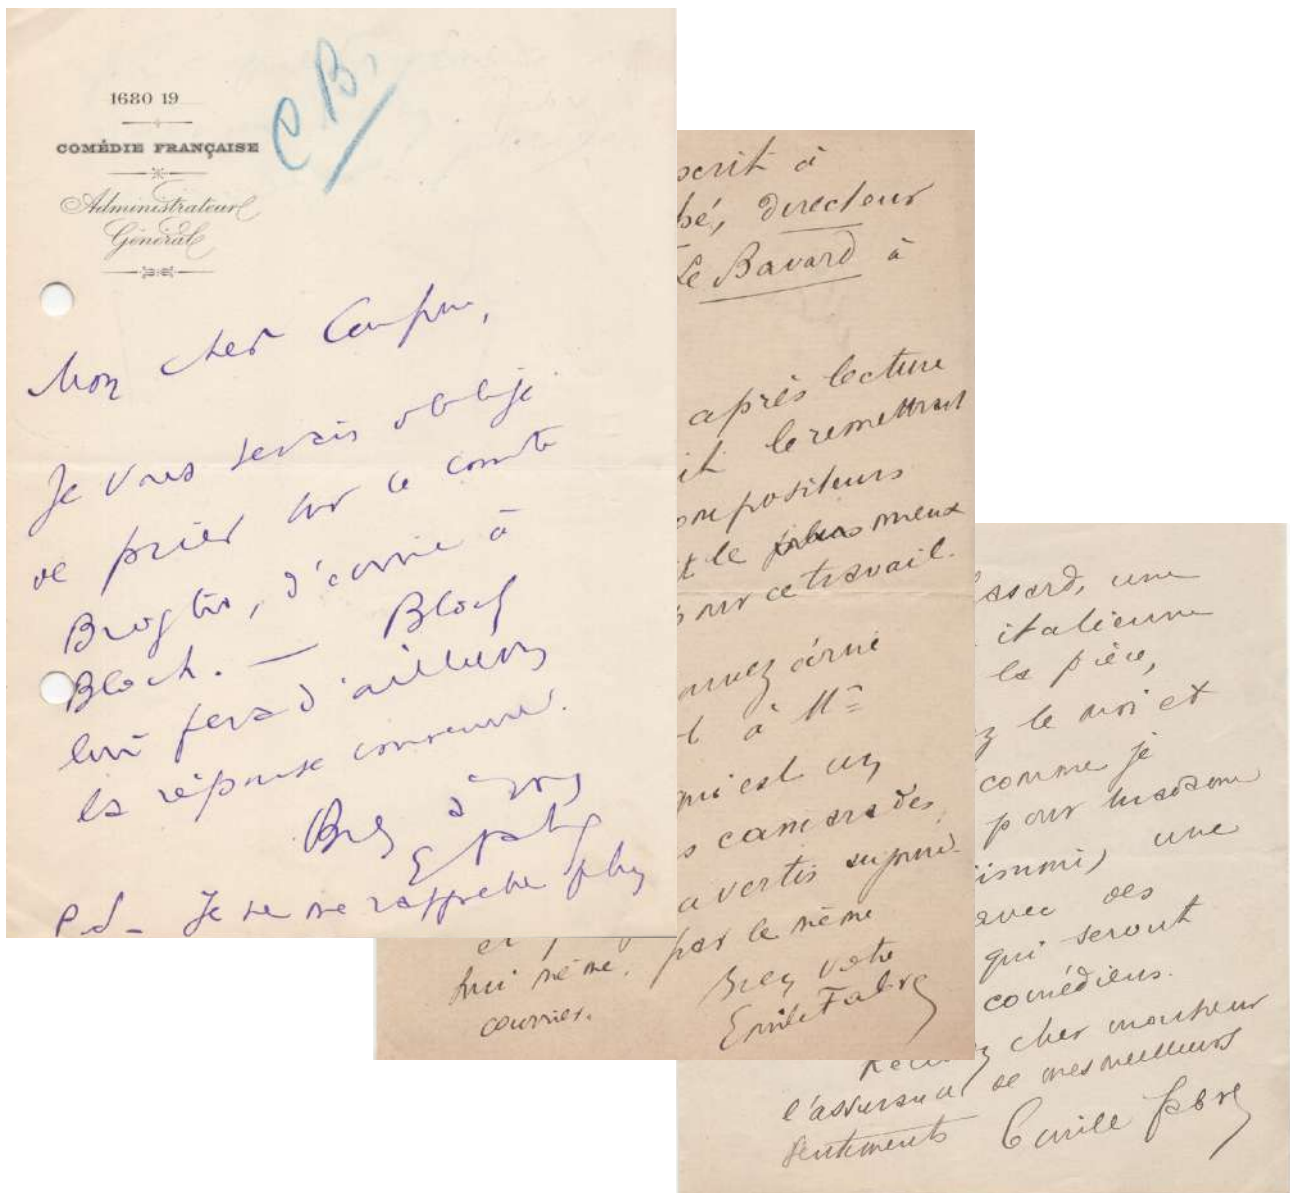 1680 19
COMÉDIE FRANÇAISE
Administrateur
Général
C B
Mon cher
Je vous serais obligé
de prier sur le comte
d'écrire à
Bloch. — Bloch
lui fera d'ailleurs
la réponse convenue.
Bien à vous
P.S - Je ne me rappelle plus
scrit à
bé, directeur
Le Bavard à
après lecture
it le remettrait
ompositeurs
t le mieux
pour ce travail.
à Mr
qui est un
s camarades,
avertis
et
lui même. par le même
courrier.
Bien votre
Emile Fabre
ssard, une
italienne
la pièce,
z le moi et
comme je
pour madame
une
avec des
qui seront
comédiens.
cher monsieur
l'assurance de mes meilleurs
sentiments Emile Fabre